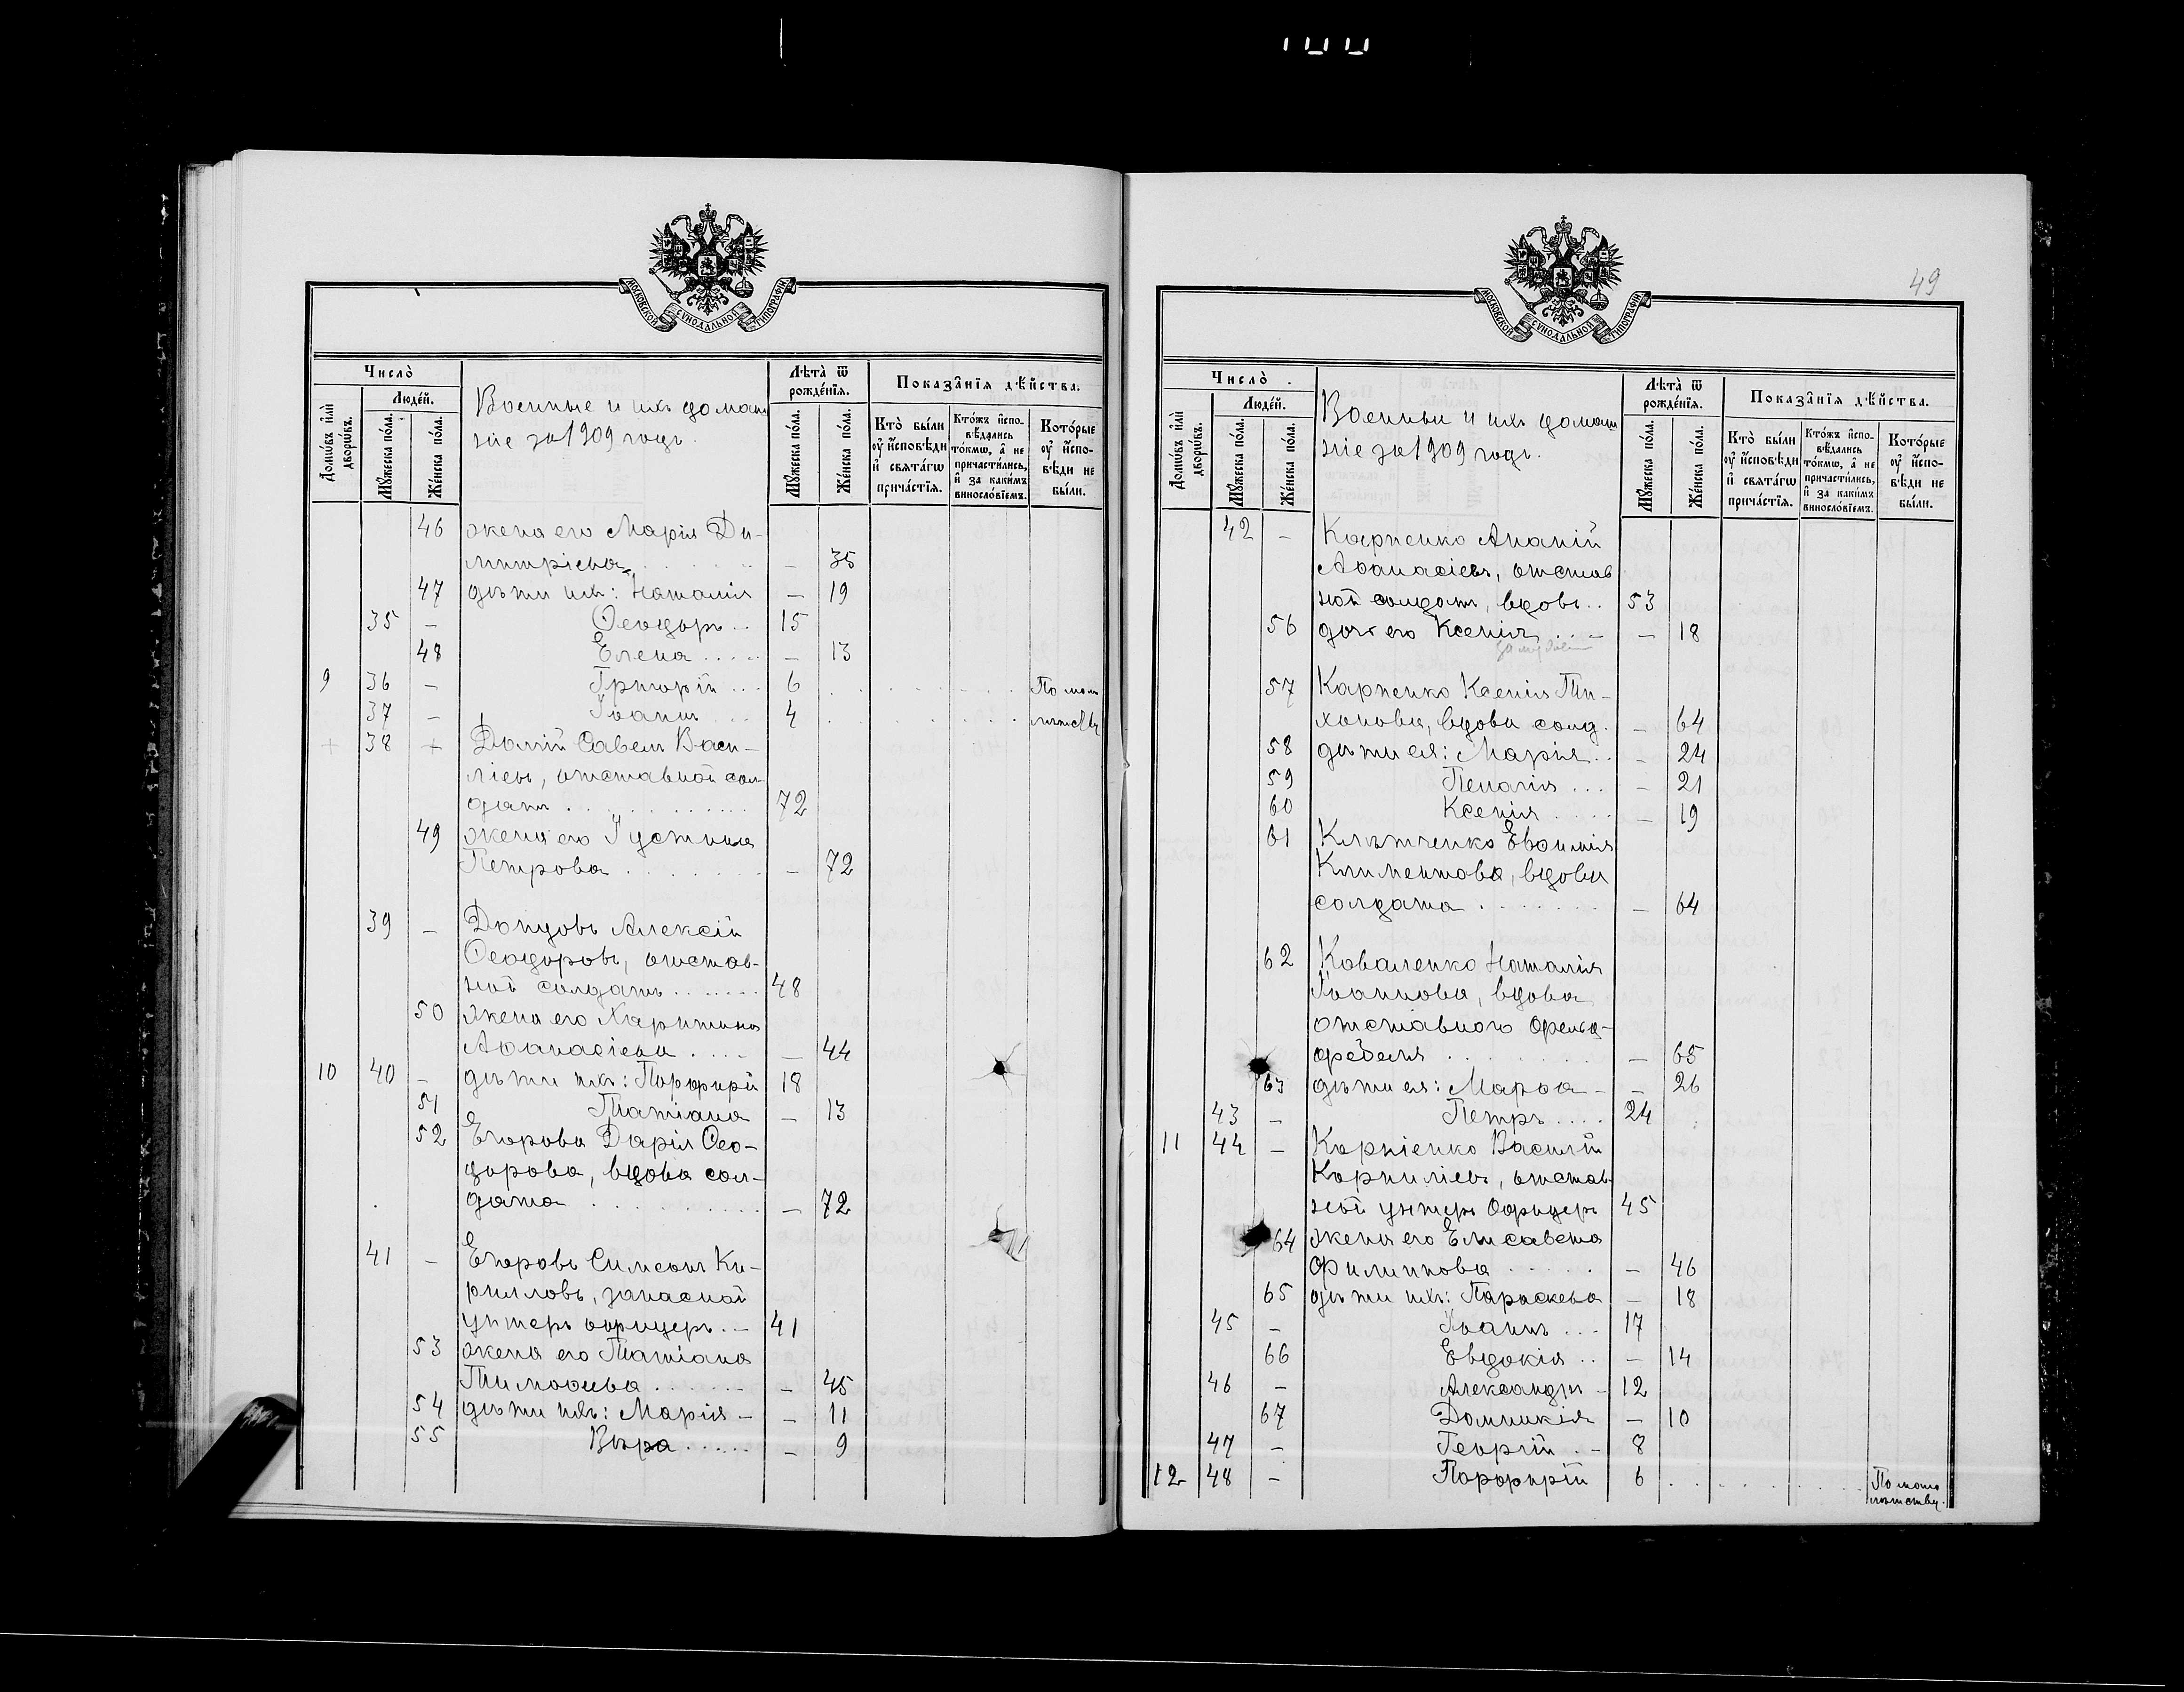 МОСКОВСКОЙ СѴНОДАЛЬНОЙ ТИПОГРАФІИ
Число̀
Людей.
Домѡвъ и҆лѝ дворѡвъ.
Мꙋ́жеска по́ла.
Же́нска по́ла.
Военные и ихъ домаш
ніе за 1909 годъ.
Лѣта̀ ѿ рожде́нїѧ.
Мꙋ́жеска по́ла.
Же́нска по́ла.
Показа̑нїѧ дѣ́йства.
Кто̀ бы́ли оу҆ и҆сповѣди и҆ свѧта́гѡ прича́стїѧ.
Кто́жъ и҆спо-вѣдались то́кмѡ, а҆ не причасти́лись, и҆ за каки́мъ винословїемъ.
Кото́рые оу҆ и҆спо-вѣди не бы́ли.
46 жена его Марія Ди-
митріева . . . . . . – 35
47 дѣти ихъ: Наталія – 19
35 – Ѳеодоръ .. 15
48 Елена ..... – 13
9 36 – Григорій ... 6 . . . . . . . По мал
37 – Іоаннъ ... 4 . . . . . . . лѣтству
+ 38 + Долгій Савелъ Васи-
ліевъ, отставной сол-
датъ . . . . . . . 72
49 жена его Іустина
Петрова . . . . . . . – 72
39 – Донцовъ Алексій
Ѳеодоровъ, отстав-
ной солдатъ ....... 48
50 жена его Харитина
Аѳанасіева .... – 44
10 40 – дѣти ихъ: Порфирій 18
51 Татіана – 13
52 Егорова Дарія Ѳео-
дорова, вдова сол-
дата . . . . . . . – 72
41 – Егоровъ Симеонъ Ки-
рилловъ, запасной
унтеръ офицеръ .– 41
53 жена его Татіана
Тимоѳиева ...... – 45
54 дѣти ихъ: Марія – – 11
55 Вѣра ...... – 9
49
МОСКОВСКОЙ СѴНОДАЛЬНОЙ ТИПОГРАФІИ
Число̀
Людей.
Домѡвъ и҆лѝ дворѡвъ.
Мꙋ́жеска по́ла.
Же́нска по́ла.
Военныи и ихъ домаш
ніе за 1909 годъ.
Лѣта̀ ѿ рожде́нїѧ.
Мꙋ́жеска по́ла.
Же́нска по́ла.
Показа̑нїѧ дѣ́йства.
Кто̀ бы́ли оу҆ и҆сповѣди и҆ свѧта́гѡ прича́стїѧ.
Кто́жъ и҆спо-вѣдались то́кмѡ, а҆ не причасти́лись, и҆ за каки́мъ винословїемъ.
Кото́рые оу҆ и҆спо-вѣди не бы́ли.
42 – Карпенко Ананій
Аѳанасіевъ, отстав
ной солдатъ, вдовъ .. 53
56 дочь его Ксенія ...– – 18
57 Карпенко Ксенія Ти-
хонова, вдова солд. – 64
58 дѣти ея: Марія .. – 24
59 Пелагія ... – 21
60 Ксенія .... – 19
61 Клѣтченко Евѳимія
Климентова, вдова
солдата . . . . . . – 64
62 Коваленко Наталія
Іоаннова, вдова
отставного фельд-
фебеля . . . . . . . – 65
63 дѣти ея: Марѳа – – 26
43 – Петръ .... 24
11 44 – Корніенко Василій
Корниліевъ, отстав-
ной унтеръ офицеръ 45
64 жена его Елисавета
Филиппова . . . . . – 46
65 дѣти ихъ: Параскева – 18
45 – Іоаннъ ... 17
66 Евдокія .. – 14
46 – Александръ – 12
67 Домникія – 10
47 – Георгій .– 8
12 48 – Порфирій 6 . . . . . . . . По мало
лѣтству.